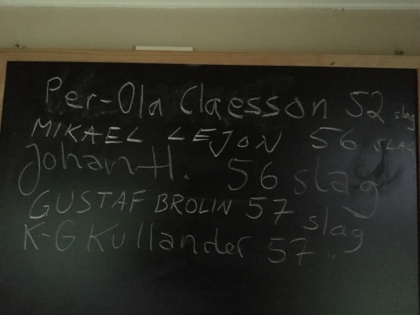 Per-Ola Claesson 52 slag
MIKAEL LEJON 56 SLAG
Johan H. 56 slag
GUSTAF BROLIN 57 slag
K-G Kullander 57 "